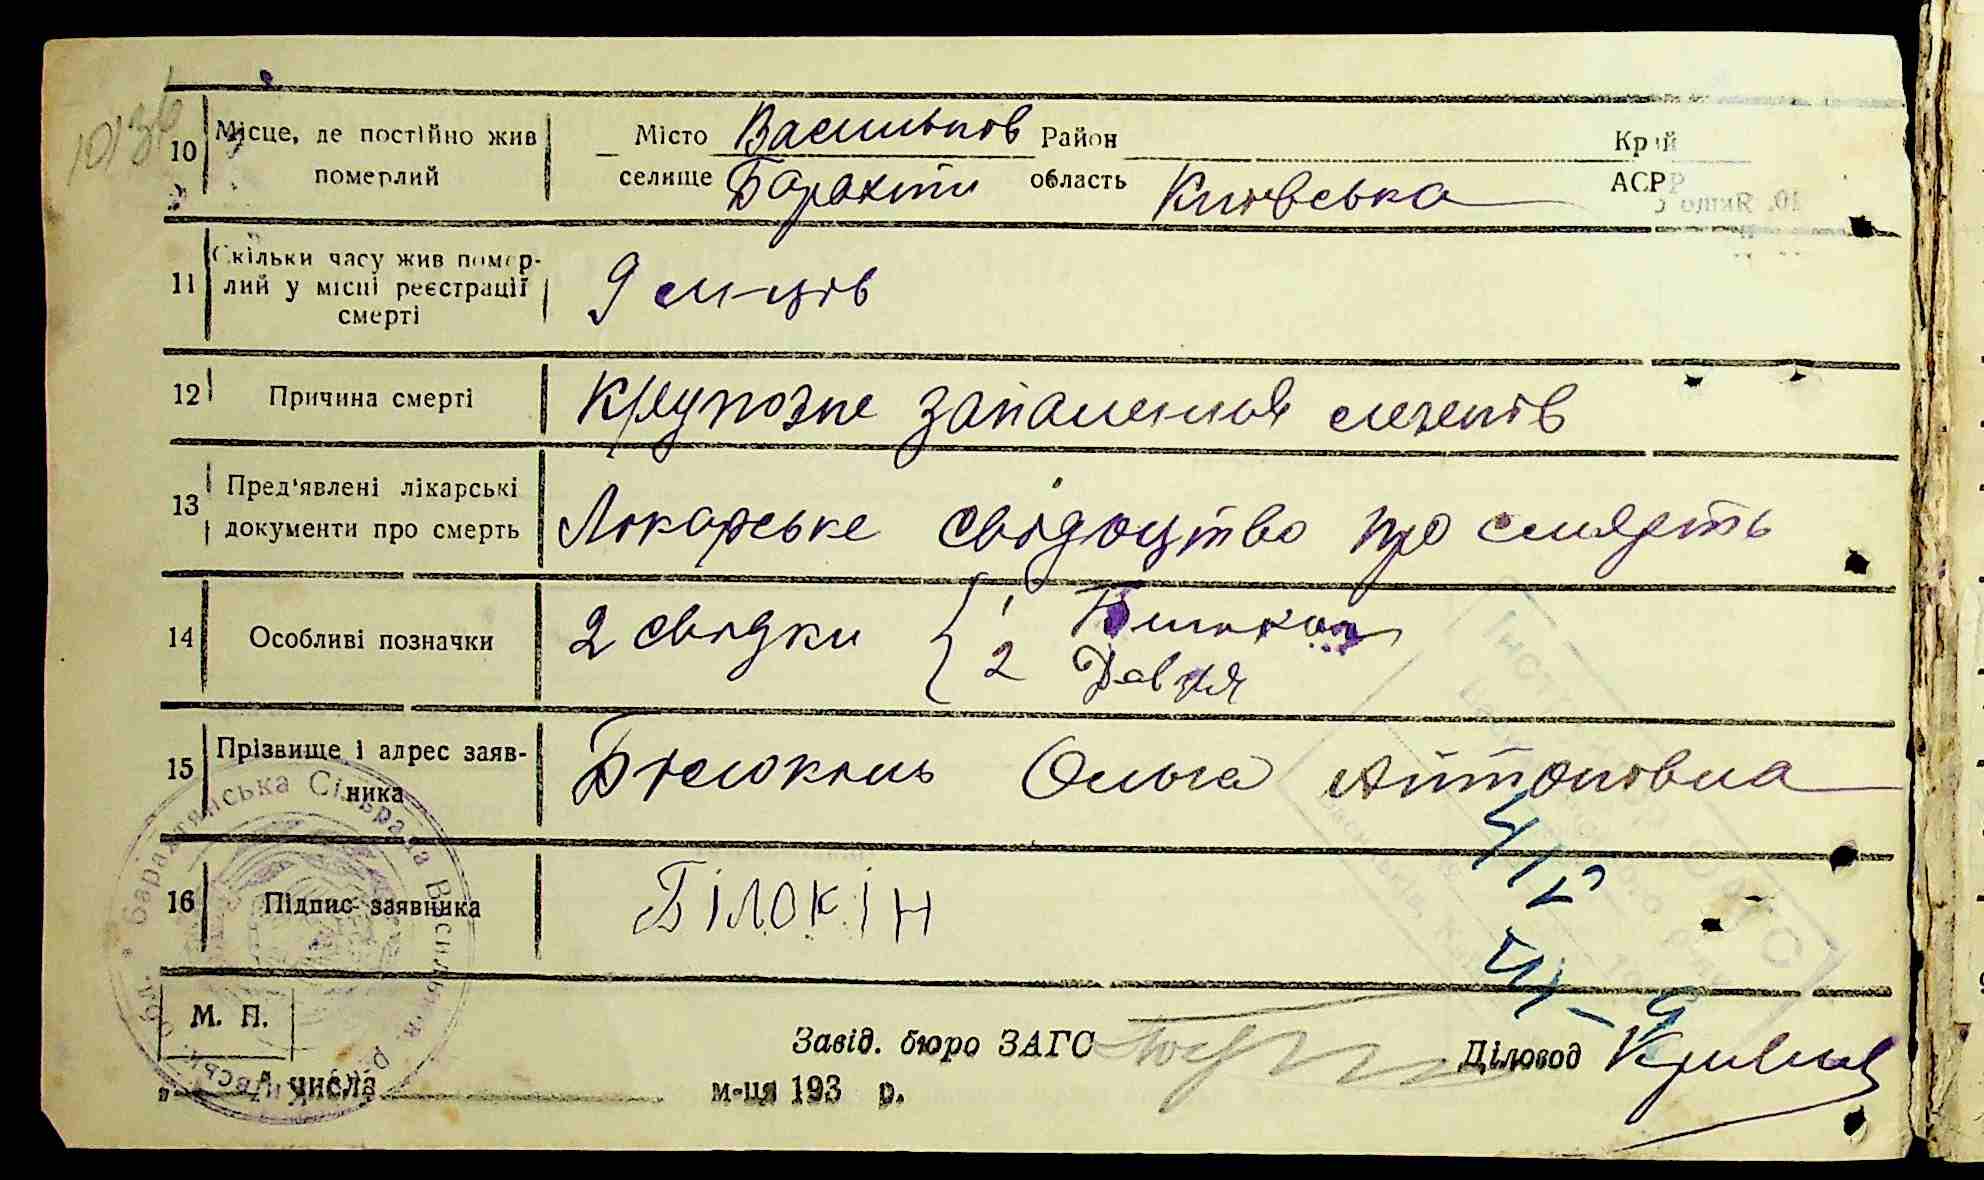 10 Місце, де постійно жив
померлий
Місто Васильков Район Край
селище Барахти область Київська АСРР
11 Скільки часу жив помер-
лий у місці реєстрації
смерті
9 м-ців
12 Причина смерті Крупозне запалення легенів
13 Пред'явлені лікарські
документи про смерть
Лікарське свідоцтво про смерть
14 Особливі позначки 2 свідки 1
2
15 Прізвище і адрес заяв-
ника
Білокінь Ольга Антоновна
16 Підпис заявника Білокін
М. П.
Завід. бюро ЗАГС Діловод
" " числа м-ця 193 р.